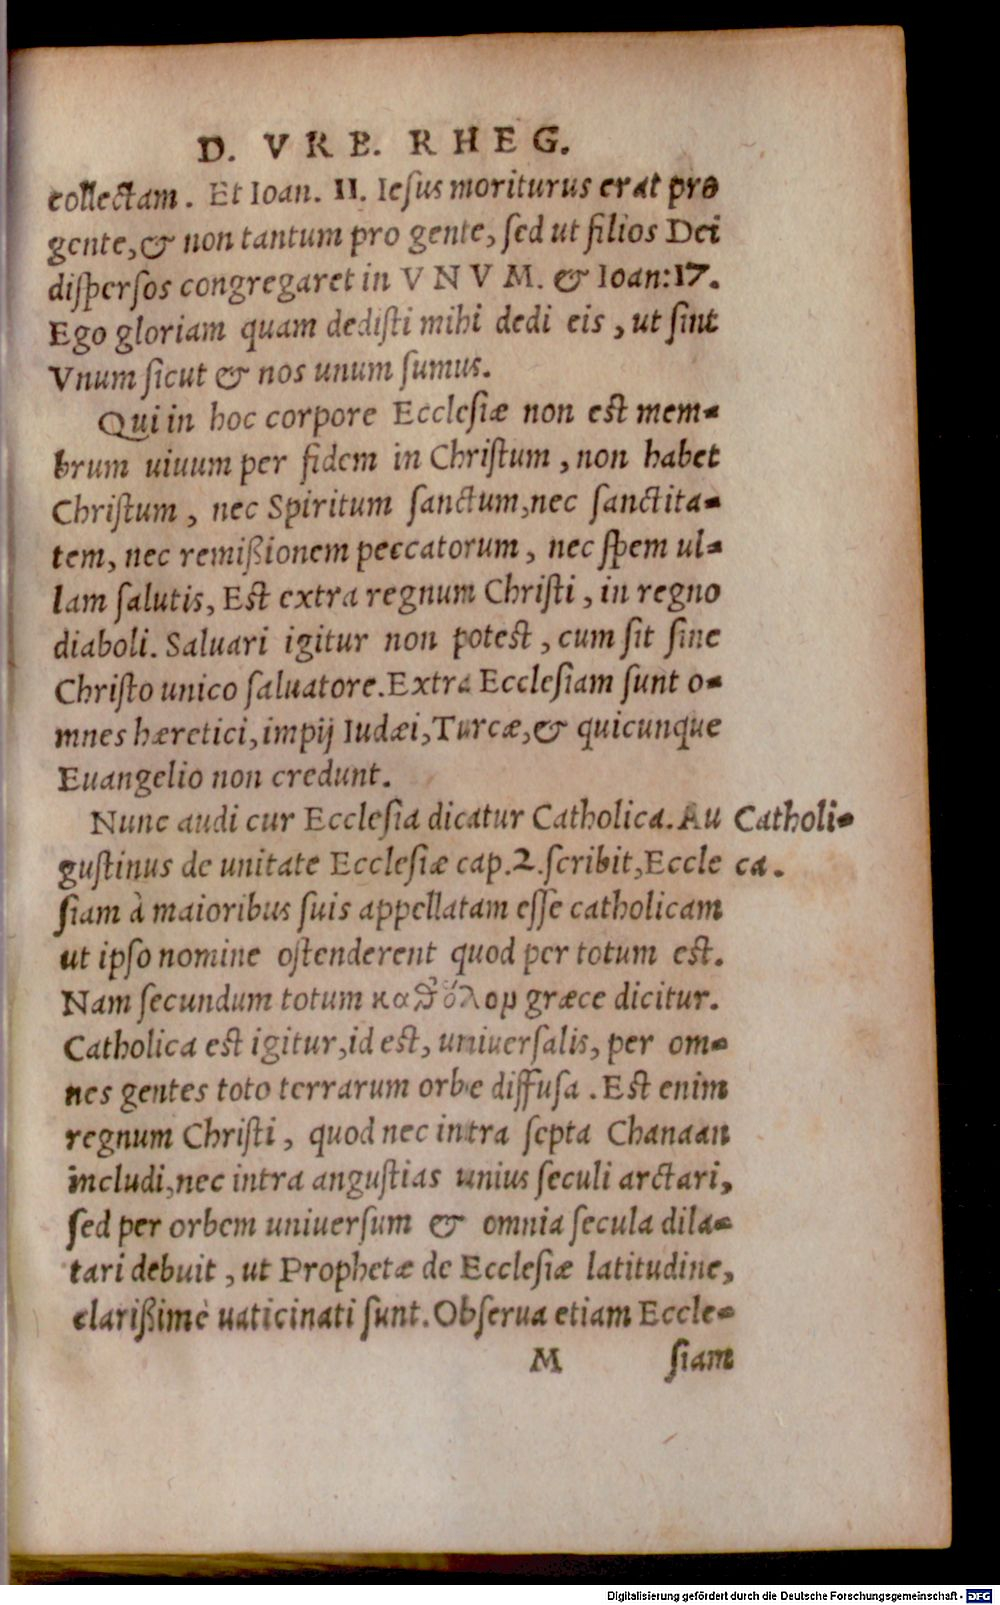 D. VRB. RHEG.
collectam. Et Ioan. 11. Iesus moriturus erat pro
gente, & non tantum pro gente, sed ut filios Dei
dispersos congregaret in VNVM. & Ioan: 17.
Ego gloriam quam dedisti mihi dedi eis, ut sint
Vnum sicut & nos unum sumus.
Qui in hoc corpore Ecclesiæ non est mem-
brum uiuum per fidem in Christum, non habet
Christum, nec Spiritum sanctum, nec sanctita-
tem, nec remißionem peccatorum, nec spem ul-
lam salutis, Est extra regnum Christi, in regno
diaboli. Saluari igitur non potest, cum sit sine
Christo unico saluatore. Extra Ecclesiam sunt o-
mnes hæretici, impij Iudæi, Turcæ, & quicunque
Euangelio non credunt.
Nunc audi cur Ecclesia dicatur Catholica. Au
Catholi-
gustinus de unitate Ecclesiæ cap. 2. scribit, Eccle
ca.
siam à maioribus suis appellatam esse catholicam
ut ipso nomine ostenderent quod per totum est.
Nam secundum totum καθ' ὅλον græce dicitur.
Catholica est igitur, id est, uniuersalis, per om-
nes gentes toto terrarum orbe diffusa. Est enim
regnum Christi, quod nec intra septa Chanaan
includi, nec intra angustias unius seculi arctari,
sed per orbem uniuersum & omnia secula dila-
tari debuit, ut Prophetæ de Ecclesiæ latitudine,
clarißimè uaticinati sunt. Obserua etiam Eccle-
M siam
Digitalisierung gefördert durch die Deutsche Forschungsgemeinschaft - DFG